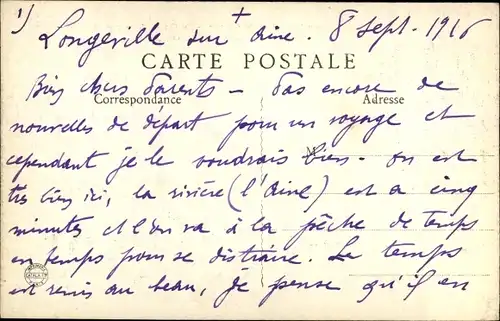 1)
+
Longeville sur Aine. 8 Sept. 1916
CARTE POSTALE
Bien chers Parents - Pas encore de
Correspondance
Adresse
nouvelles de départ pour un voyage et
cependant je le voudrais bien - on est
très bien ici, la rivière (l'Aine) est a cinq
minutes et l'on va à la pêche de temps
en temps pour se distraire. Le temps
est remis au beau, je pense qu'il en